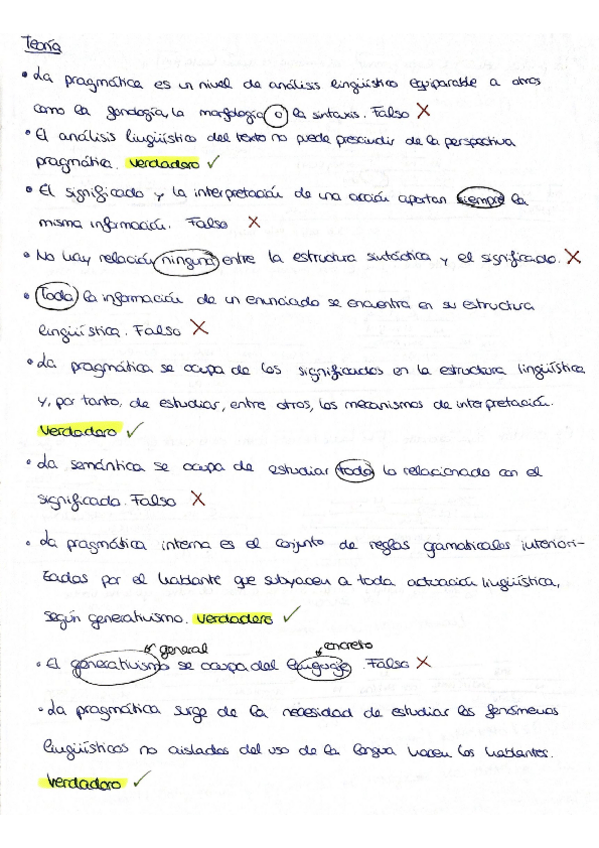 Teoría
• La pragmática es un nivel de análisis lingüístico equiparable a otros
como la fonología, la morfología o la sintaxis. Falso X
• El análisis lingüístico del texto no puede prescindir de la perspectiva
pragmática. Verdadero ✓
• El significado y la interpretación de una oración aportan siempre la
misma información. Falso X
• No hay relación ninguna entre la estructura sintáctica y el significado. X
• Toda la información de un enunciado se encuentra en su estructura
lingüística. Falso X
• La pragmática se ocupa de los significados en la estructura lingüística
y, por tanto, de estudiar, entre otros, los mecanismos de interpretación.
Verdadero ✓
• La semántica se ocupa de estudiar todo lo relacionado con el
significado. Falso X
• La pragmática interna es el conjunto de reglas gramaticales interiori-
zadas por el hablante que subyacen a toda actuación lingüística,
según generativismo. Verdadero ✓
general
• El generativismo se ocupa del lenguaje. Falso X
• La pragmática surge de la necesidad de estudiar los fenómenos
lingüísticos no aislados del uso de la lengua hacen los hablantes.
Verdadero ✓